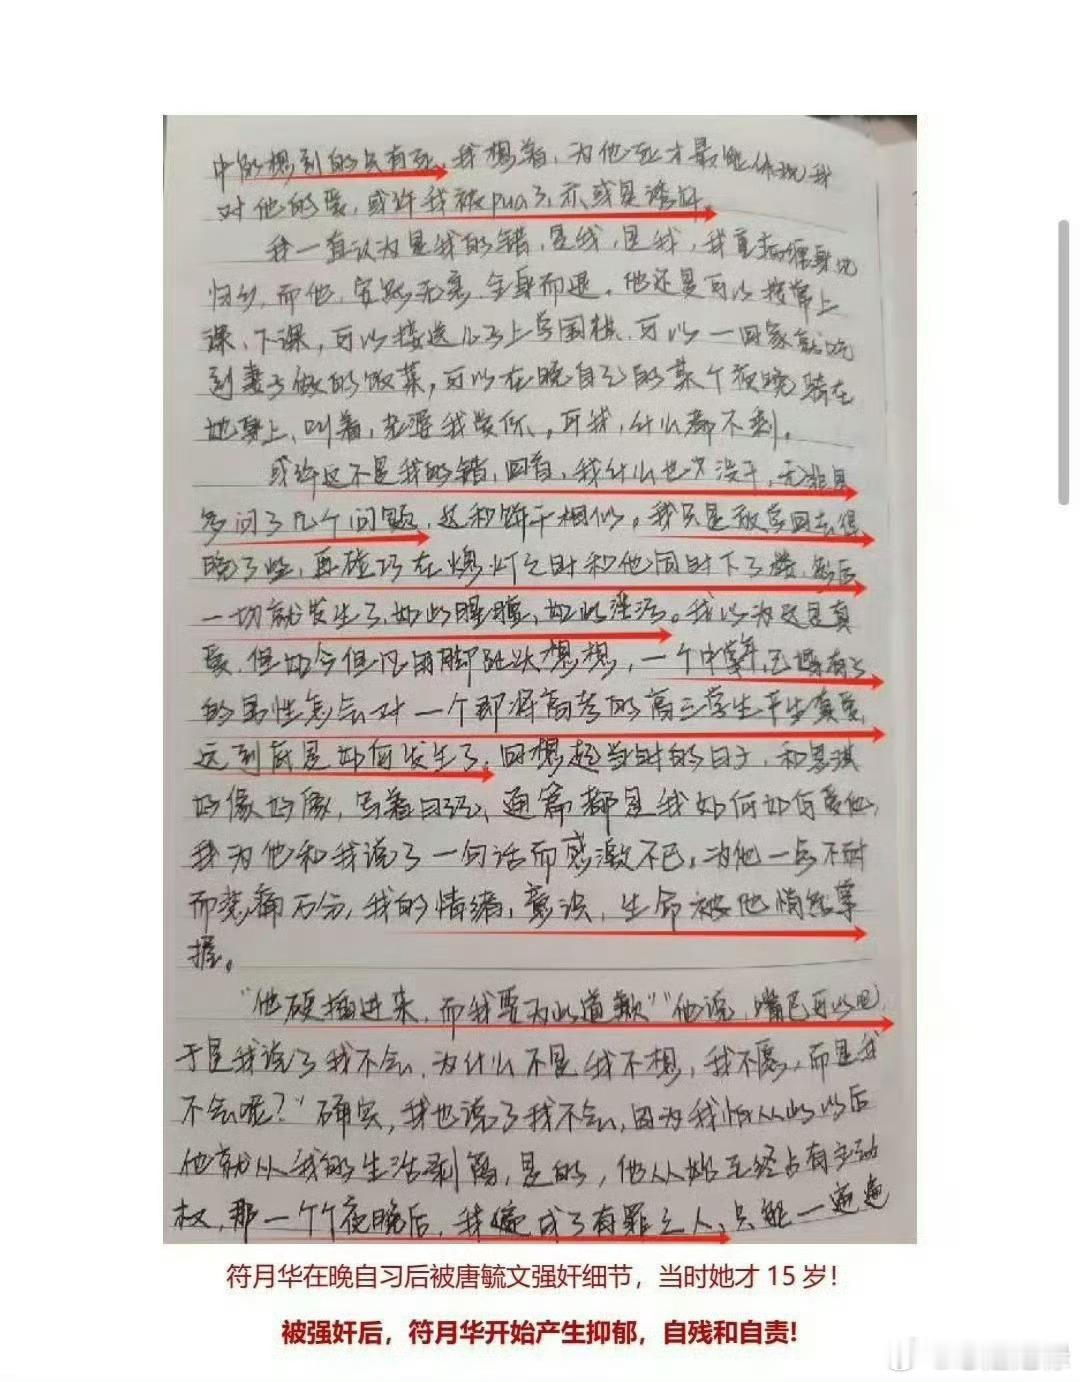 中的想到的只有死。我想着，为他死才最能体现我
对他的爱，或许我被pua了，亦或是诱奸。
我一直认为是我的错，是我，是我，我重病缠身
归乡，而他，安然无恙，全身而退。他还是可以按常上
课、下课，可以接送儿子上学围棋，可以一回家就吃
到妻子做的饭菜，可以在晚自习的某个夜晚骑在
她身上，叫着，老婆我爱你。而我，什么都不剩。
或许这不是我的错，回首，我什么也没干，无非是
多问了几个问题，这和饼干相似。我只是放学回去得
晚了些，再碰巧在熄灯之时和他同时下了楼，然后
一切就发生了，如此，如此。我以为这是真
爱，但如今但凡用脚趾头想想，一个中年，已婚有子
的男性怎会对一个即将高考的高三学生产生真爱，
这到底是如何发生了。回想起当时的日子，和思琪
好像好像，写着日记，通篇都是我如何如何爱他，
我为他和我说了一句话而感激不已，为他一点不耐
而悲痛万分，我的情绪，意识，生命被他悄然掌
握。
“他硬插进来，而我要为此道歉”“他说，嘴巴可以吧，
于是我说了我不会，为什么不是我不想，我不愿，而是我
不会呢？”确实，我也说了我不会，因为我怕从此以后
他就从我的生活剥离，是的，他从始至终占有主动
权，那一个个夜晚后，我便成了有罪之人，只能一遍遍
符月华在晚自习后被唐毓文强奸细节，当时她才 15 岁！
被强奸后，符月华开始产生抑郁，自残和自责!